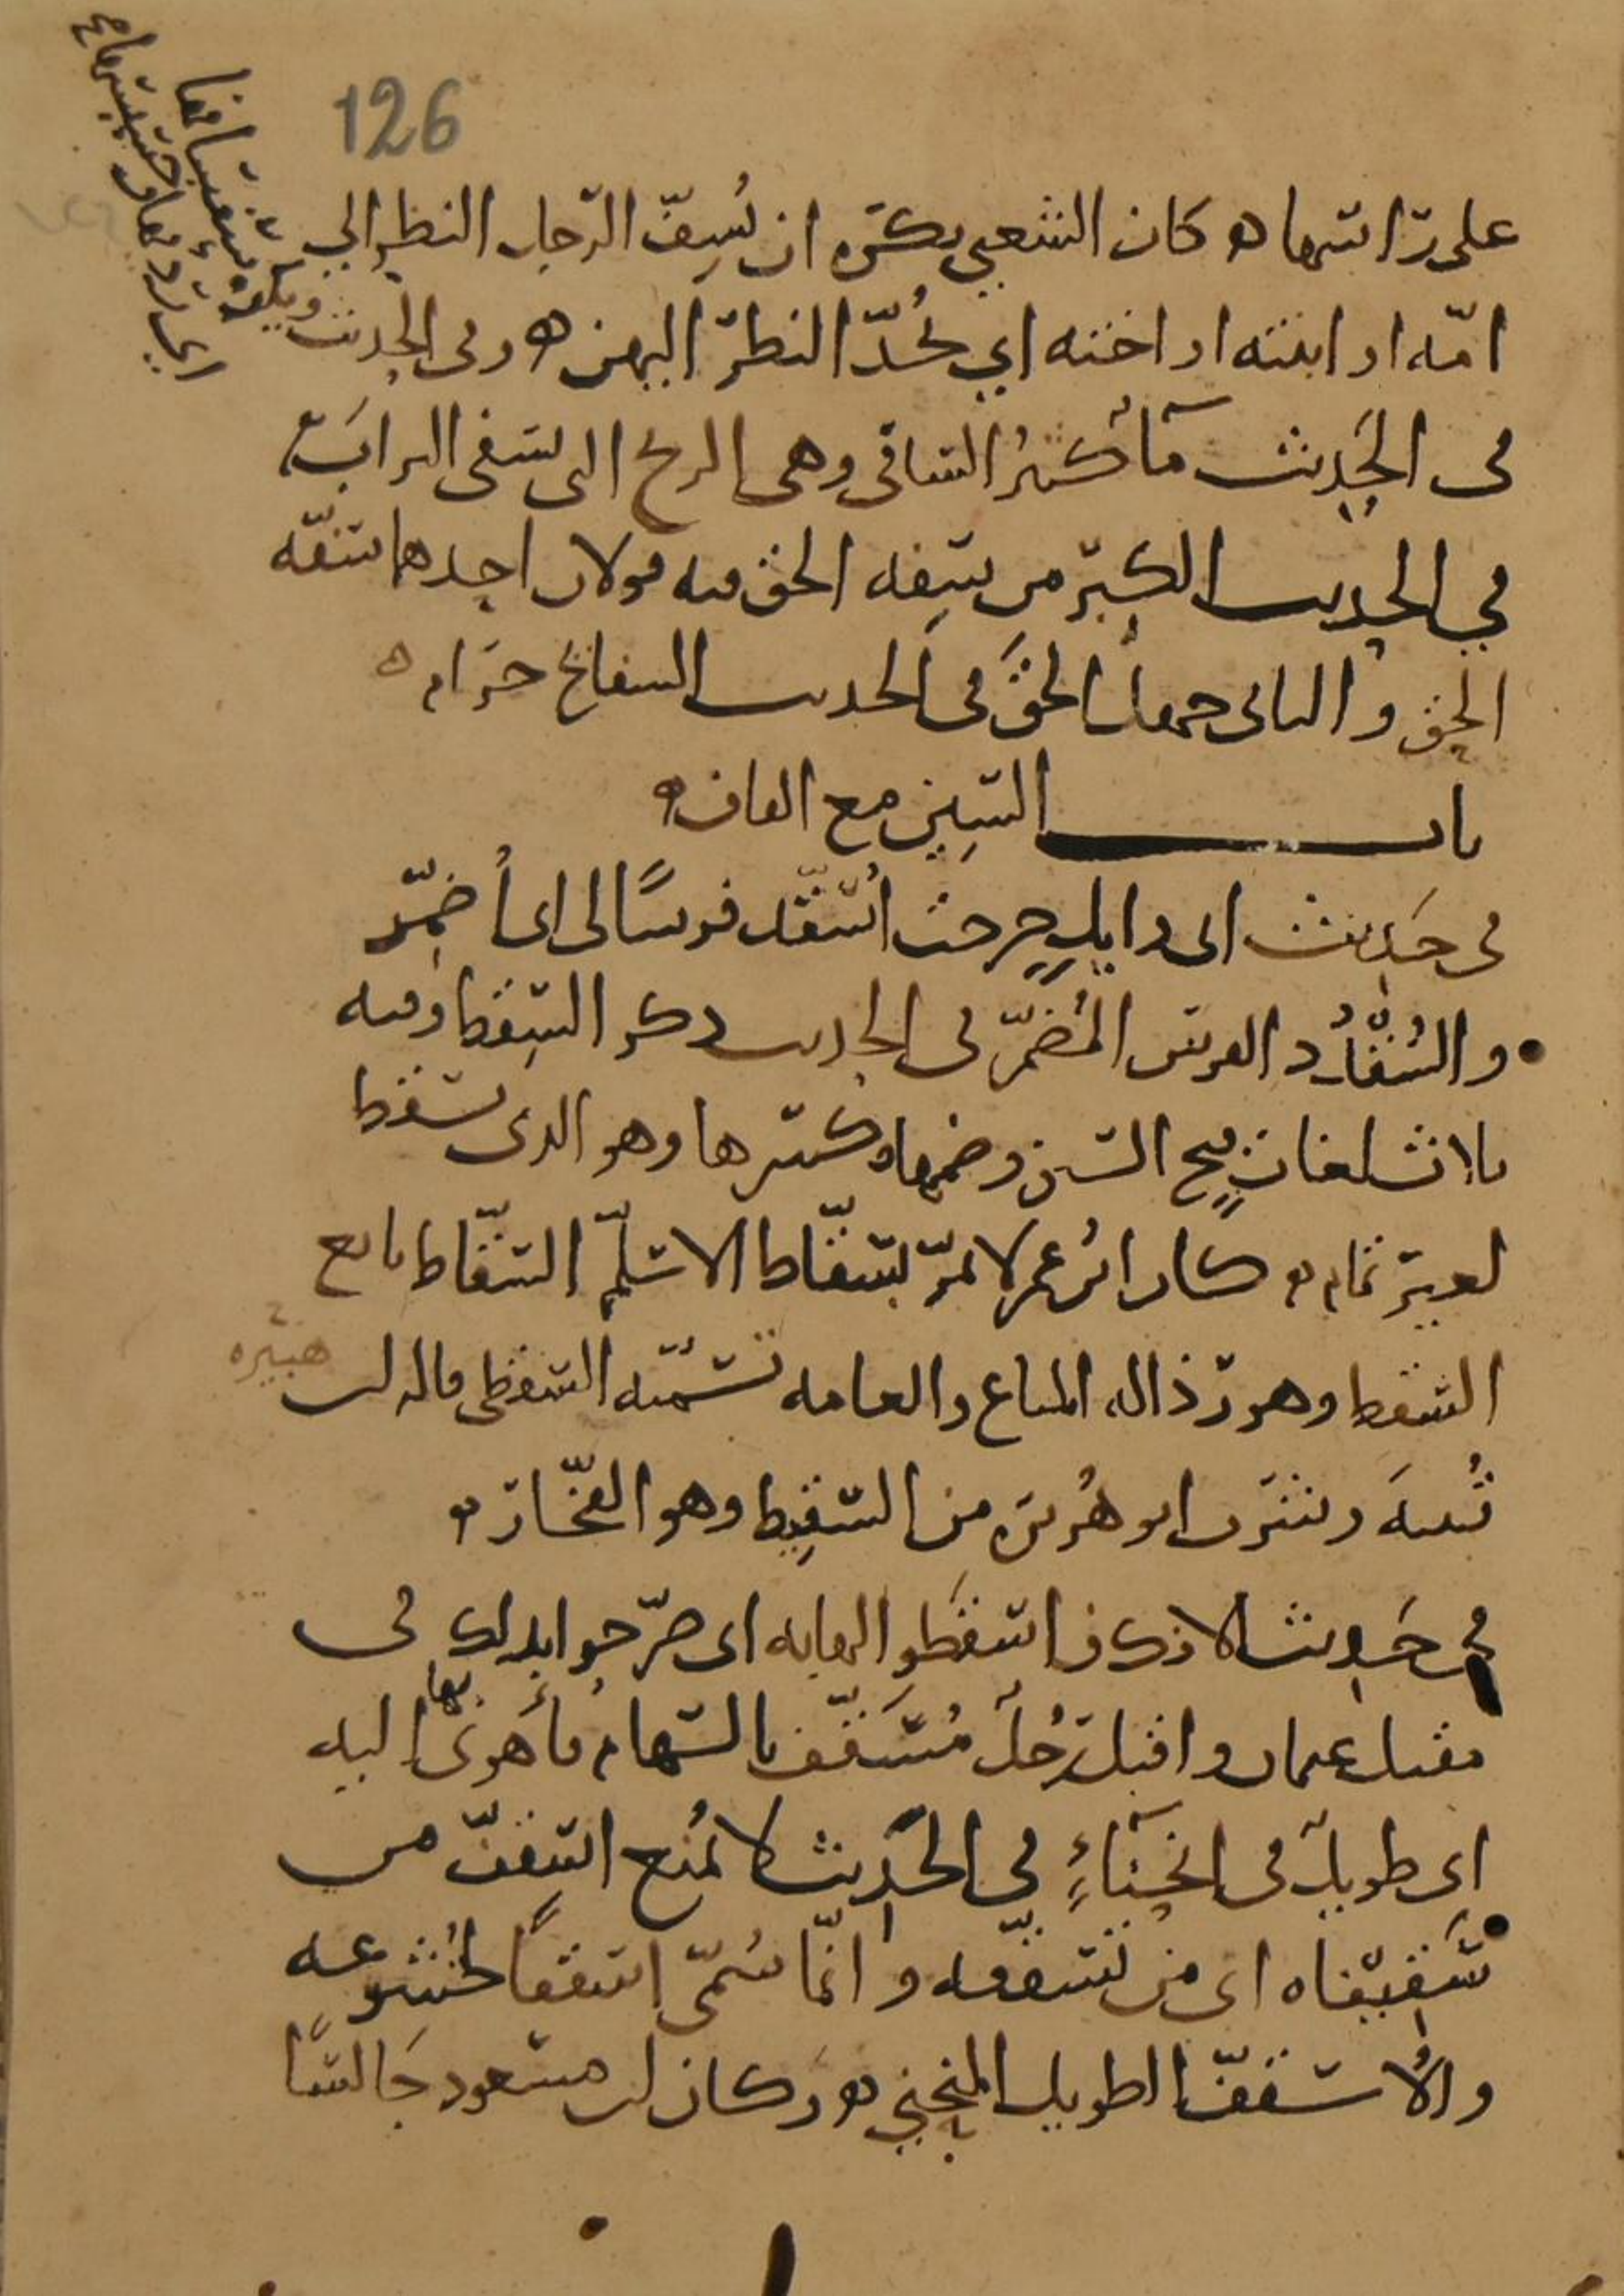 126
على رأسها ه كان الشعبي يكره ان يُسِفّ الرجل النظر الي
امّه او ابنته او اخته اي يُحدّ النظر اليهن ه وفي الحديث ويكره سفسافها
اي رديها وخسيسها
في الحديث ما أكثرُ السافي وهي الريح التى تسفي الترابَ
في الحديث الكبر من سَفِه الحق فيه قولان احدهما سفّه
الحق والثاني جهل الحقَّ في الحديث السفايح حرام ه
باب السين مع القاف ه
في حديث ابى وايلٍ خرجت اُسقّد فرسًا لى اى أُضمّر
والسُّقْدُد الفرس المُضمّر فى الحديث ذكر السِقط وفيه
ثلاث لغات فتح السين وضمها وكسرها وهو الذى سقط
لغير تمام ه كان ابن عمر لا يمرّ بسقّاط الا سلّم السقّاط بايع
السقط وهو رذال المتاع والعامه تسمّيه السقطى قاله ابن
قتيبة وشرب ابو هُريره من السقِيط وهو الفخّار ه
هبيره
في حديث الافك فاسقطوا لها به اى صرّحوا بذلك في
مقتل عثمان واقبل رَجُلٌ مُسَقّف بالسهام فأهوى بها اليه
اى طويل في انحناءٍ في الحديث لا يُمنع اسقفّ من
سِقّيفاه اى من تسقّفه وانّما سُمّى اسقفًا لخُشوعه
والأسقفّ الطويل المنحني ه وكان ابن مسعود جَالسًا